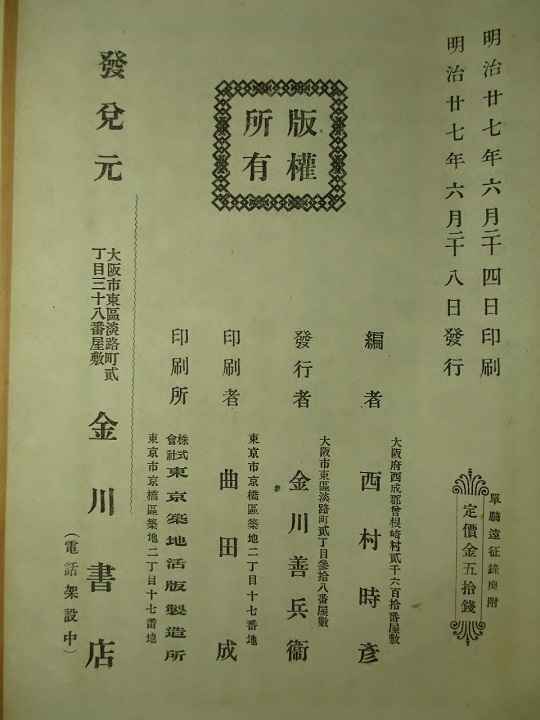 明治廿七年六月二十四日印刷
明治廿七年六月二十八日發行
單騎遠征錄奧附
定價金五拾錢
版權
所有
大阪府西成郡曾根崎村貳千六百拾番屋敷
編者 西村時彥
大阪市東區淡路町貳丁目參拾八番屋敷
發行者 金川善兵衞
東京市京橋區築地二丁目十七番地
印刷者 曲田成
株式會社東京築地活版製造所
印刷所
東京市京橋區築地二丁目十七番地
發兌元
大阪市東區淡路町貳
丁目三十八番屋敷
金川書店
(電話架設中)